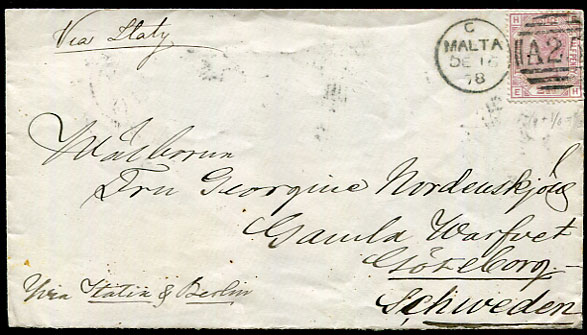 Via Italy
C
MALTA
DE 16
78
A25
H E
E H
Fru Georgine Nordenskjöld
Gamla Warfvet
Göteborg
Schweden
Via Italia & Berlin